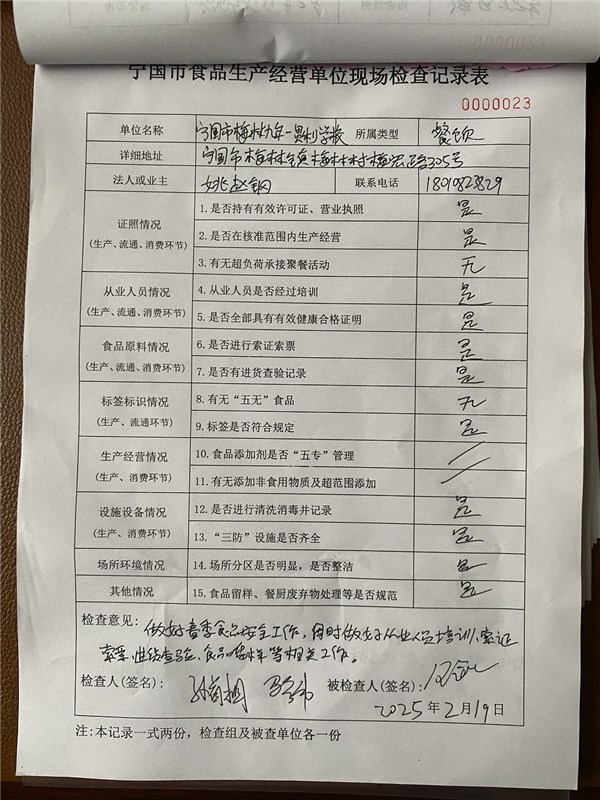 宁国市食品生产经营单位现场检查记录表
0000023
单位名称 宁国市梅林九年一贯制学校 所属类型 餐饮
详细地址 宁国市梅林镇梅林村梅忠路305号
法人或业主 姚赵钢 联系电话
证照情况 1.是否持有有效许可证、营业执照 是
(生产、流通、消费环节) 2.是否在核准范围内生产经营 是
3.有无超负荷承接聚餐活动 无
从业人员情况 4.从业人员是否经过培训 是
(生产、流通、消费环节) 5.是否全部具有有效健康合格证明 是
食品原料情况 6.是否进行索证索票 是
(生产、流通、消费环节) 7.是否有进货查验记录 是
标签标识情况 8.有无“五无”食品 无
(生产、流通环节) 9.标签是否符合规定 是
生产经营情况 10.食品添加剂是否“五专”管理 /
(生产、消费环节) 11.有无添加非食用物质及超范围添加 /
设施设备情况 12.是否进行清洗消毒并记录 是
(生产、消费环节) 13.“三防”设施是否齐全 是
场所环境情况 14.场所分区是否明显，是否整洁 是
其他情况 15.食品留样、餐厨废弃物处理等是否规范 是
检查意见: 做好春季食品安全工作，同时做好从业人员培训、索证
索票、进货查验、食品留样等相关工作。
检查人(签名): 被检查人(签名):
2025年2月19日
注:本记录一式两份，检查组及被查单位各一份